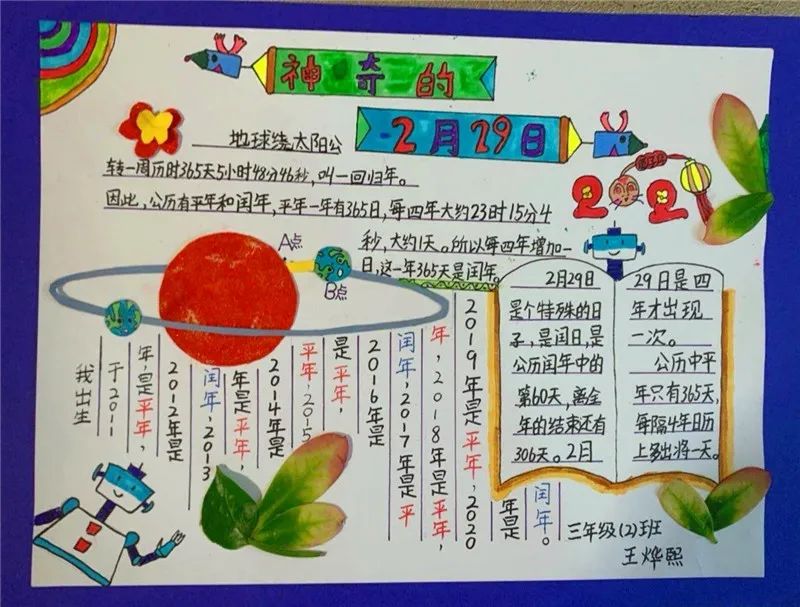 神奇的
2月29日
2020
地球绕太阳公
转一周历时365天5小时48分46秒,叫一回归年。
因此,公历有平年和闰年,平年一年有365日,每四年大约23时15分4
秒,大约1天。所以每四年增加一
日,这一年365天是闰年。
A点
B点
我出生
于2011
年,是平年,
2012年是
闰年,2013
年是平年,
2014年是
平年,2015
是平年,
2016年是
闰年,2017年是平
年,2018年是平年,
2019年是平年,2020
年是
闰年。
2月29日
是个特殊的日
子,是闰日,是
公历闰年中的
第60天,离全
年的结束还有
306天。2月
29日是四
年才出现
一次。
公历中平
年只有365天,
每隔4年日历
上多出将一天。
三年级(2)班
王烨熙